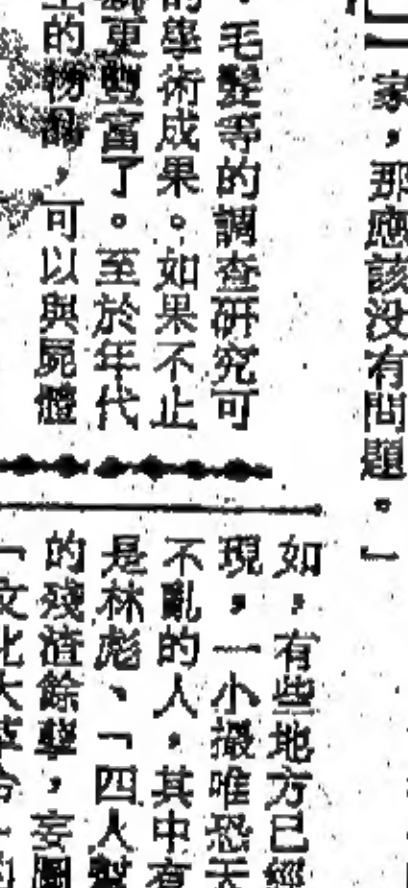 家，那應該没有問題。」
、毛髮等的調查研究可
的學術成果。如果不止
更豐富了。至於年代
上的物品，可以與屍體
如，有些地方已經
現，一小撮唯恐天
不亂的人，其中有
是林彪、「四人幫
的殘渣餘孽，妄圖
「文化大革命